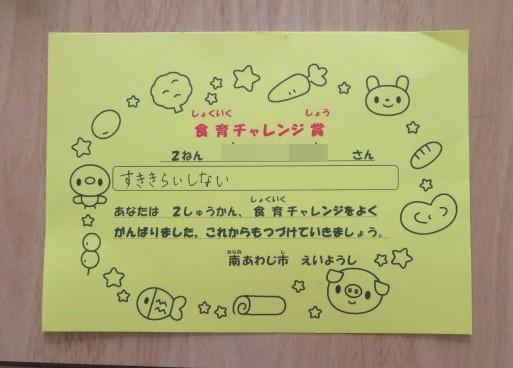 しょくいく しょう
食育チャレンジ賞
2ねん さん
すききらいしない
あなたは 2しゅうかん、食育チャレンジをよく
しょくいく
がんばりました。これからもつづけていきましょう。
みなみ し
南あわじ市 えいようし